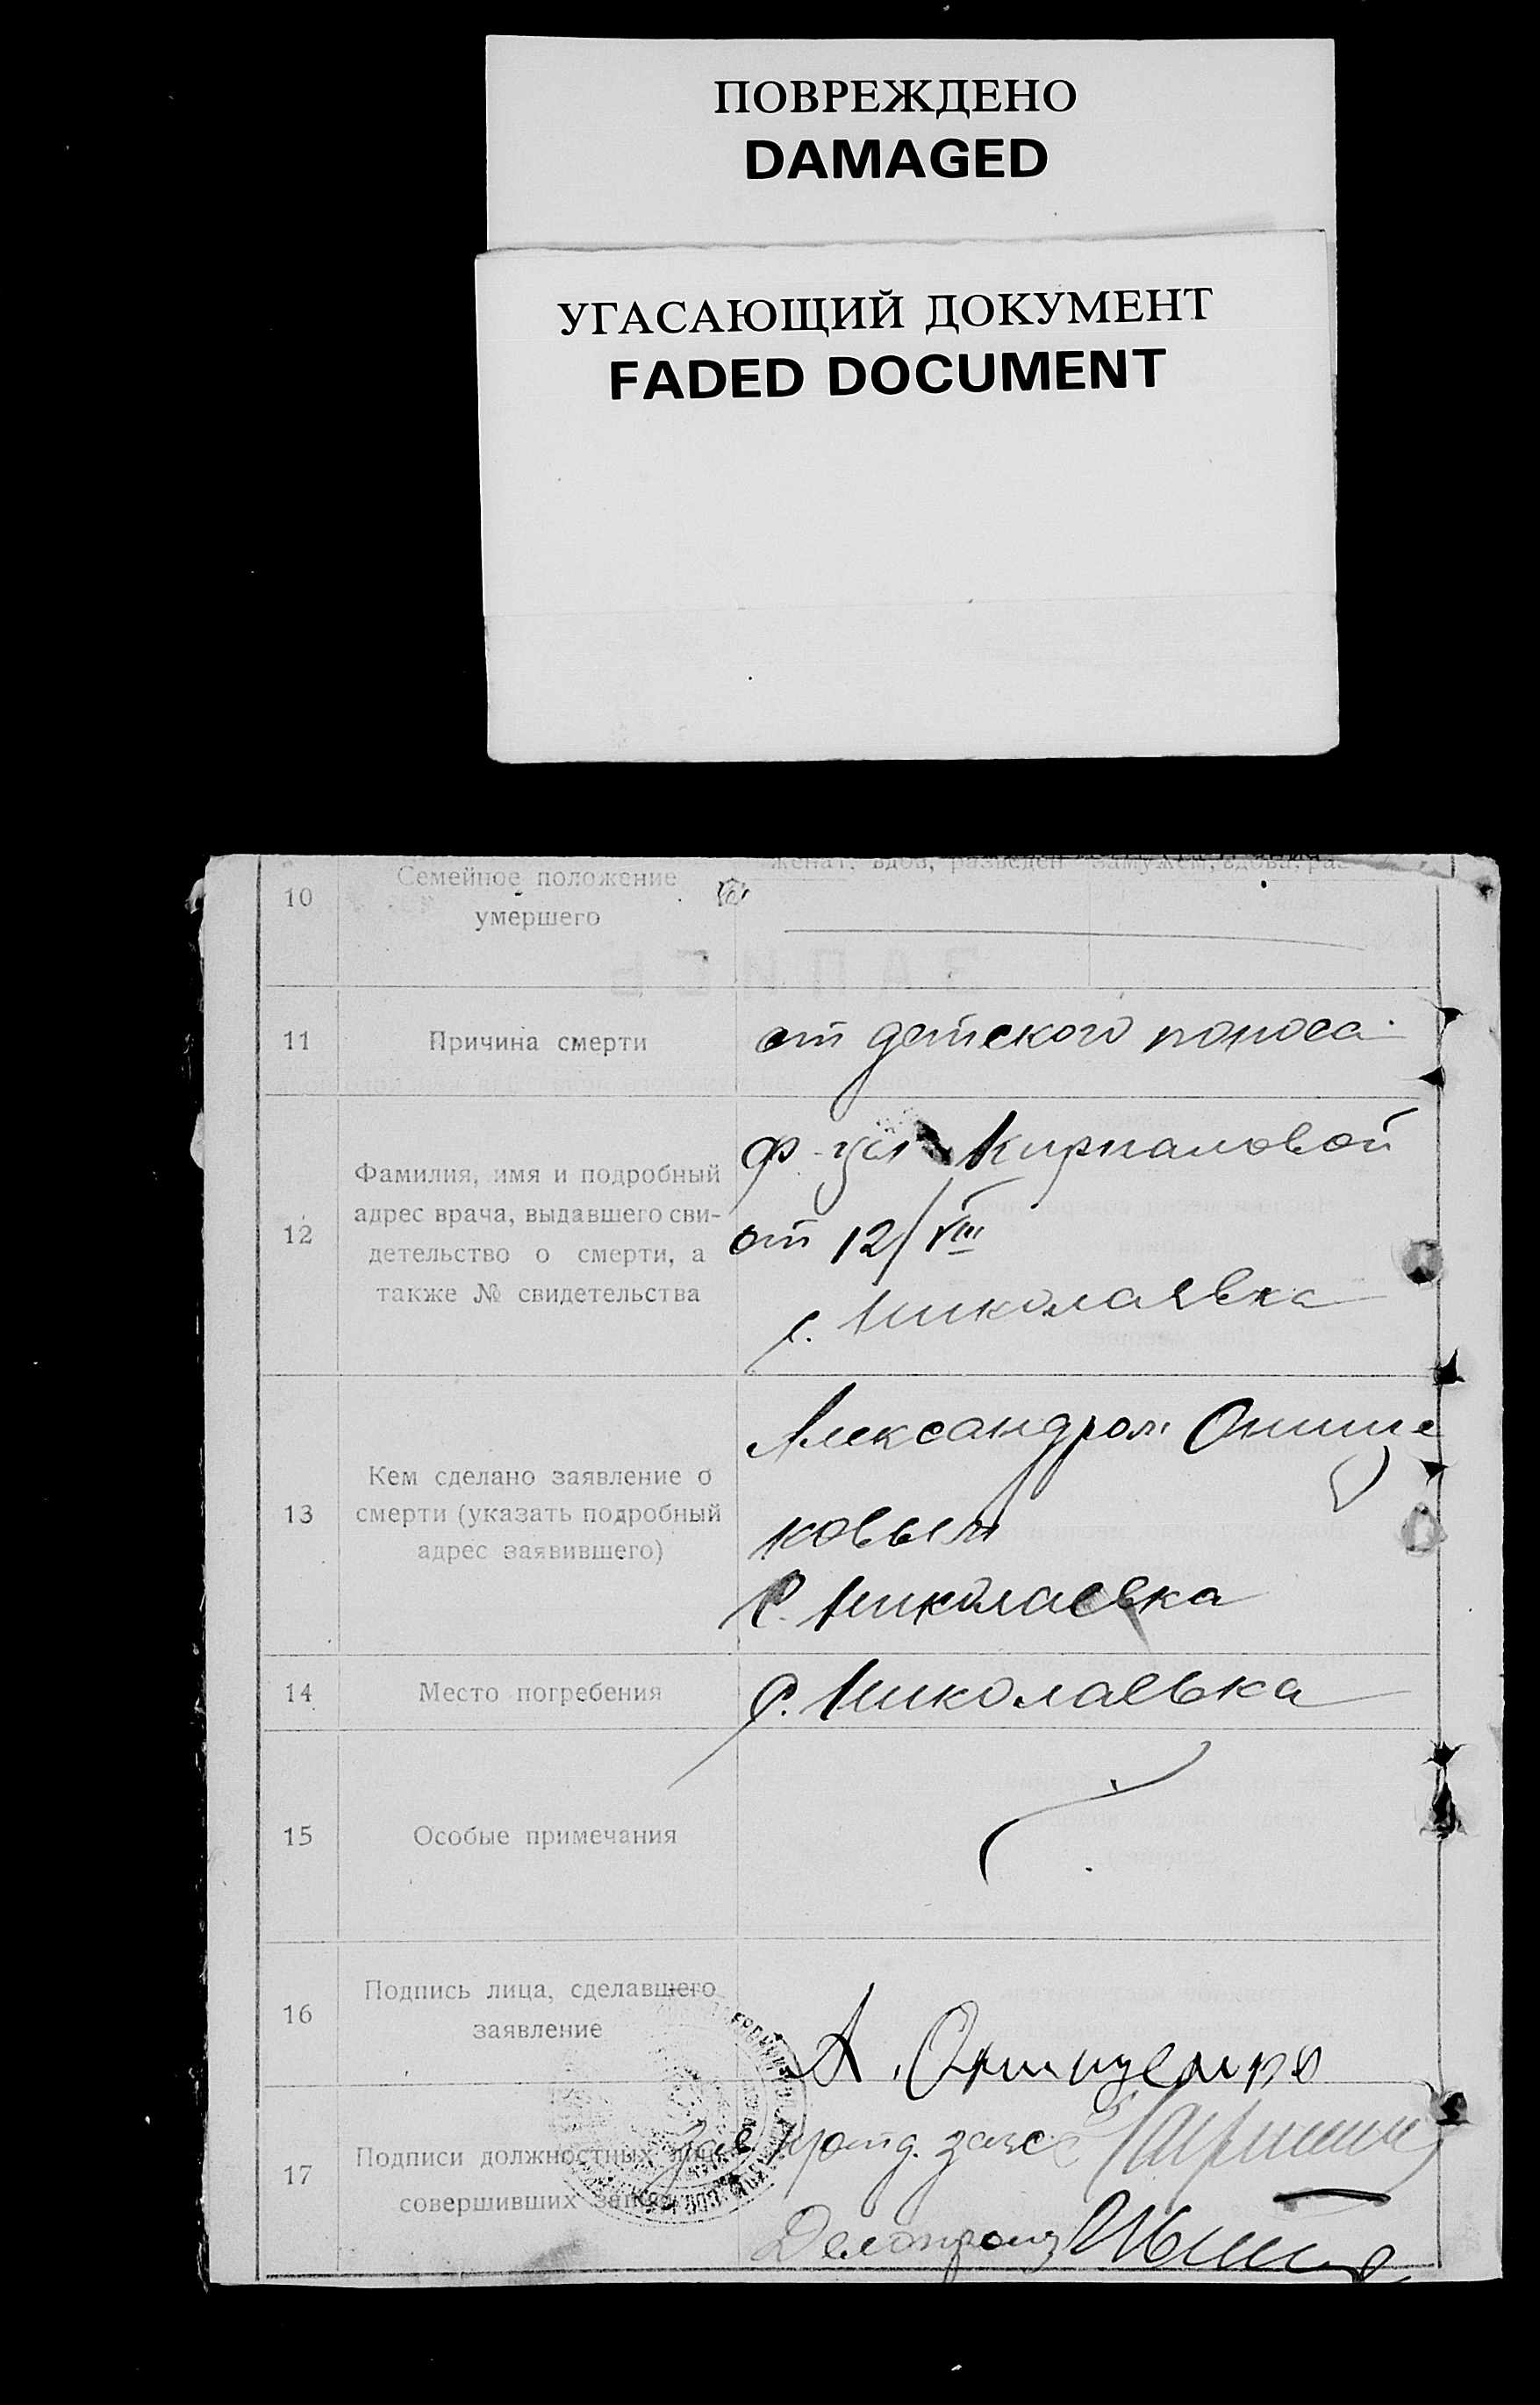 ПОВРЕЖДЕНО
DAMAGED
УГАСАЮЩИЙ ДОКУМЕНТ
FADED DOCUMENT
женат, вдов, разведен замужем, вдова, раз
10 Семейное положение
умершего
11 Причина смерти от детского поноса
12 Фамилия, имя и подробный
адрес врача, выдавшего сви-
детельство о смерти, а
также № свидетельства
Кирпаловой
от 12/VIII
с. Николаевка
13 Кем сделано заявление о
смерти (указать подробный
адрес заявившего)
Александром Онище
ковым
с. Николаевка
14 Место погребения с. Николаевка
15 Особые примечания
16 Подпись лица, сделавшего
заявление
А.
17 Подписи должностных лиц,
совершивших запись
Зав загс
Делопроиз